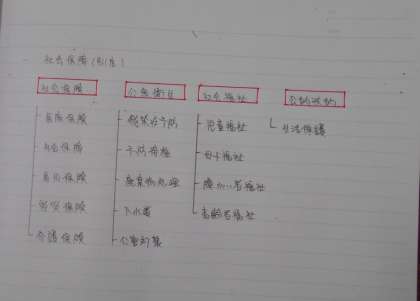 社会保障(制度)
社会保険
医療保険
年金保険
雇用保険
労災保険
介護保険
公衆衛生
感染症予防
予防接種
廃棄物処理
下水道
公害対策
社会福祉
児童福祉
母子福祉
障がい者福祉
高齢者福祉
公的扶助
生活保護